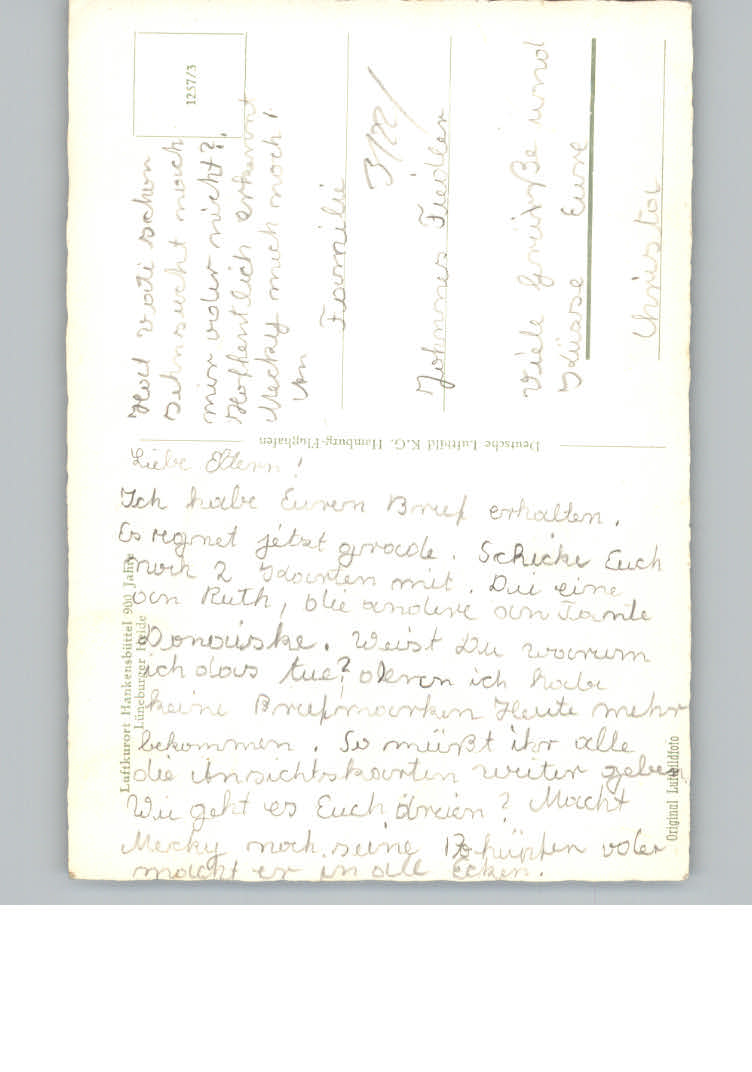 Liebe Eltern!
Ich habe Euren Brief erhalten.
Es regnet jetzt gerade. Schicke Euch
noch 2 Karten mit. Die eine
an Ruth, die andere an Tante
Donaiske. Weist Du warum
ich das tue? denn ich habe
keine Briefmarken Heute mehr
bekommen. So müßt ihr alle
die Ansichtskarten weiter geben
Wie geht es Euch dreien? Macht
Mecky noch seine hüpfen oder
macht er in alle Ecken.
Hat Vati schon
Sehnsucht nach
mir oder nicht?
Hoffentlich erkennt
Mecky mich noch!
An
Familie
Johannes Fiedler
Viele Grüße und
Küsse Eure
Christa
1257/3
Deutsche Luftbild K.G. Hamburg-Flughafen
Luftkurort Hankensbüttel 900 Jahre
Lüneburger Heide
Original Luftbildfoto